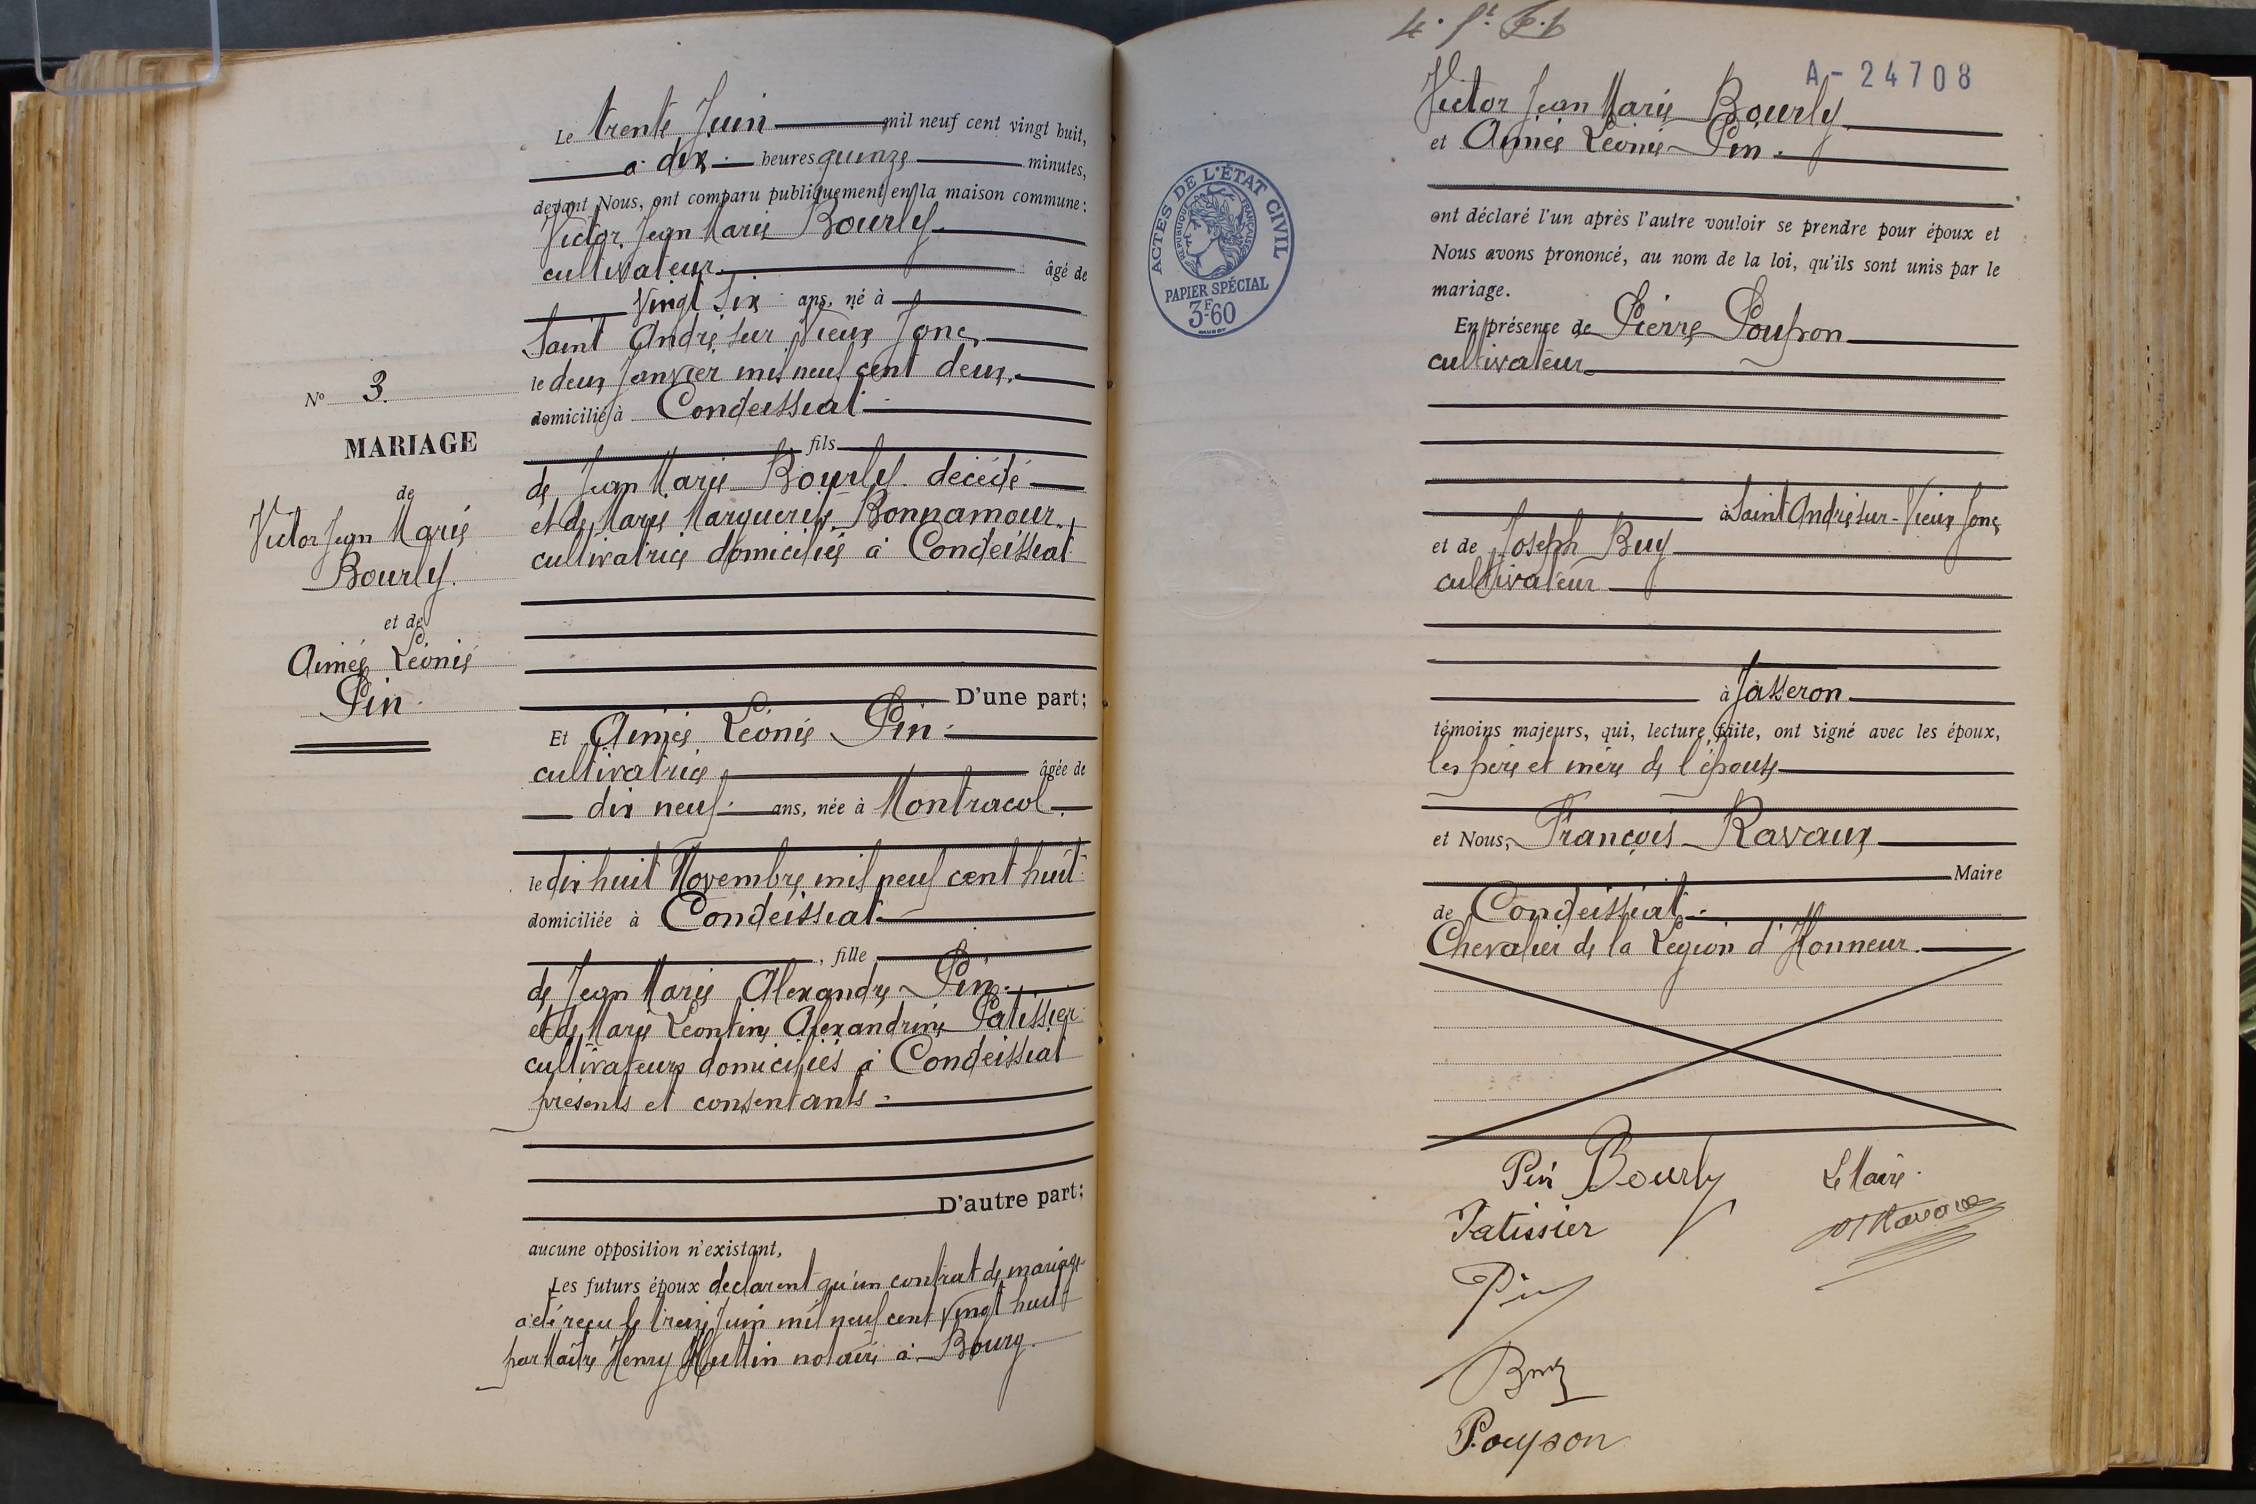 Le trente Juin mil neuf cent vingt huit,
à dix heures quinze minutes,
devant Nous, ont comparu publiquement en la maison commune :
Victor Jean Marie Bourly
cultivateur âgé de
vingt six ans, né à
Saint André sur Vieux Jonc
le deux Janvier mil neuf cent deux.
domicilié à Condeissiat
fils
de Jean Marie Bourly décédé
et de Marie Marguerite Bonnamour
cultivatrice domiciliée à Condeissiat
D'une part;
Nº 3.
MARIAGE
de
Victor Jean Marie
Bourly.
et de
Aimée Léonie
Pin.
Et Aimée Léonie Pin
cultivatrice âgée de
dix neuf ans, née à Montracol
le dix huit Novembre mil neuf cent huit
domiciliée à Condeissiat
, fille
de Jean Marie Alexandre Pin
et de Marie Léontine Alexandrine Patissier
cultivateurs domiciliés à Condeissiat
présents et consentants
D'autre part;
aucune opposition n'existant,
Les futurs époux déclarent qu'un contrat de mariage
a été reçu le treize Juin mil neuf cent vingt huit
par Maître Henry Muttin notaire à Bourg.
A - 24708
Victor Jean Marie Bourly
et Aimée Léonie Pin.
ACTES DE L'ÉTAT CIVIL
RÉPUBLIQUE FRANÇAISE
PAPIER SPÉCIAL
3F60
ont déclaré l'un après l'autre vouloir se prendre pour époux et
Nous avons prononcé, au nom de la loi, qu'ils sont unis par le
mariage.
En présence de Pierre
cultivateur
à Saint André sur-Vieux Jonc
et de Joseph Buy
cultivateur
à Jasseron
témoins majeurs, qui, lecture faite, ont signé avec les époux,
les père et mère de l'épouse
et Nous, François Ravaux
Maire
de Condeissiat
Chevalier de la Légion d'Honneur.
Pin Bourly Le Maire.
Patissier
Pin
Buy